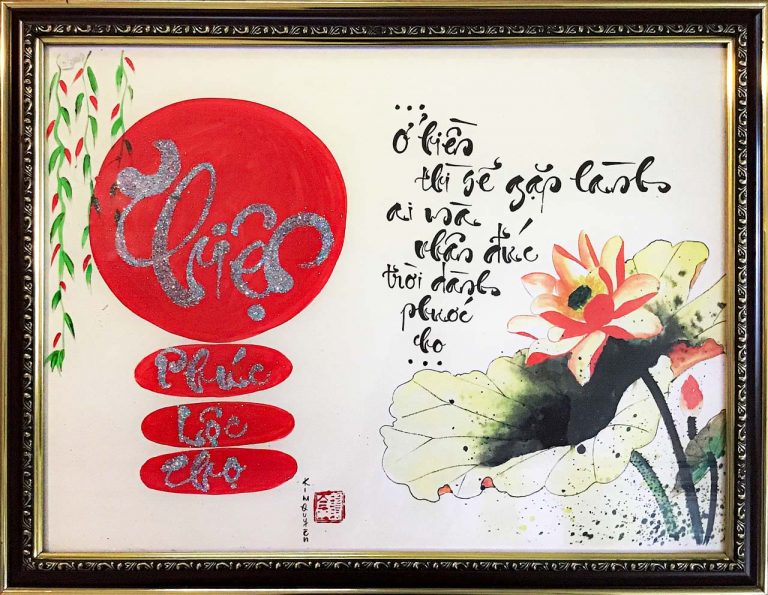 Thiện
Phúc
Lộc
Thọ
...
Ở hiền
thì sẽ gặp lành
ai mà
nhân đức
trời dành
phước
cho
...
KIM QUYEN